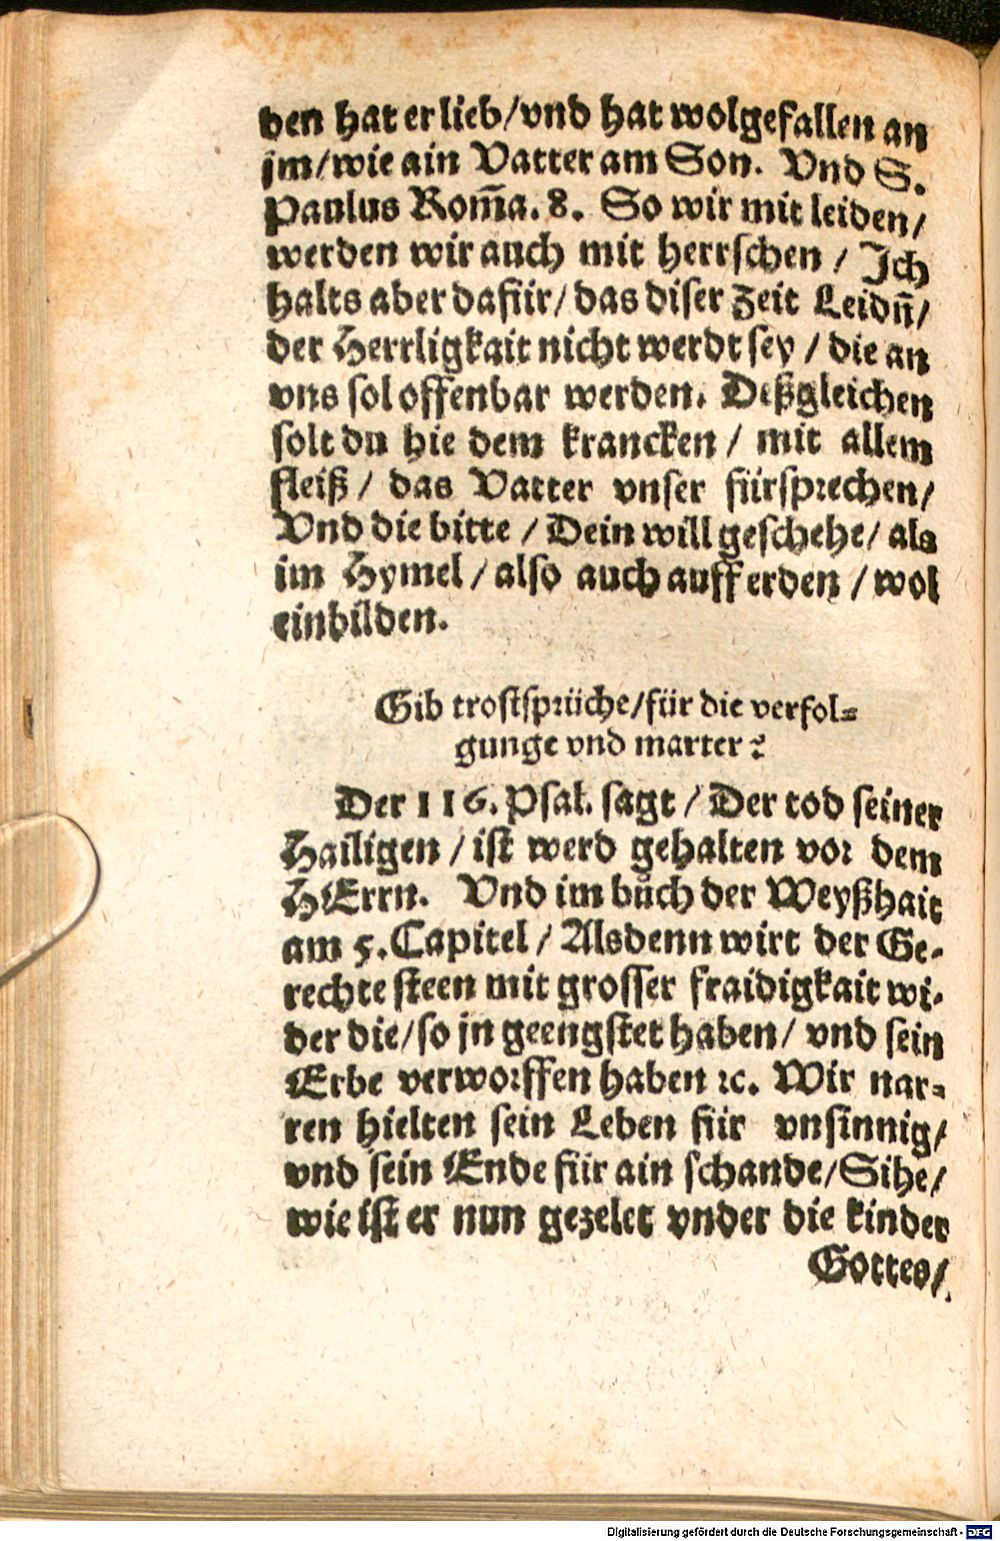 den hat er lieb/vnd hat wolgefallen an
jm/wie ain Vatter am Son. Vnd S.
Paulus Rom̃a. 8. So wir mit leiden/
werden wir auch mit herrschen / Ich
halts aber dafür/ das diser zeit Leidñ/
der Herrligkait nicht werdt sey / die an
vns sol offenbar werden. Deßgleichen
solt du hie dem krancken / mit allem
fleiß / das Vatter vnser fürsprechen/
Vnd die bitte / Dein will geschehe/ als
im Hymel / also auch auff erden / wol
einbilden.
Gib trostsprüche/für die verfol⸗
gunge vnd marter?
Der 116. Psal. sagt / Der tod seiner
Hailigen / ist werd gehalten vor dem
HErrn. Vnd im bůch der Weyßhait
am 5. Capitel / Alsdenn wirt der Ge⸗
rechte steen mit grosser fraidigkait wi⸗
der die/so jn geengstet haben/ vnd sein
Erbe verworffen haben ꝛc. Wir nar⸗
ren hielten sein Leben für vnsinnig/
vnd sein Ende für ain schande/Sihe/
wie ist er nun gezelet vnder die kinder
Gottes/
Digitalisierung gefördert durch die Deutsche Forschungsgemeinschaft - DFG